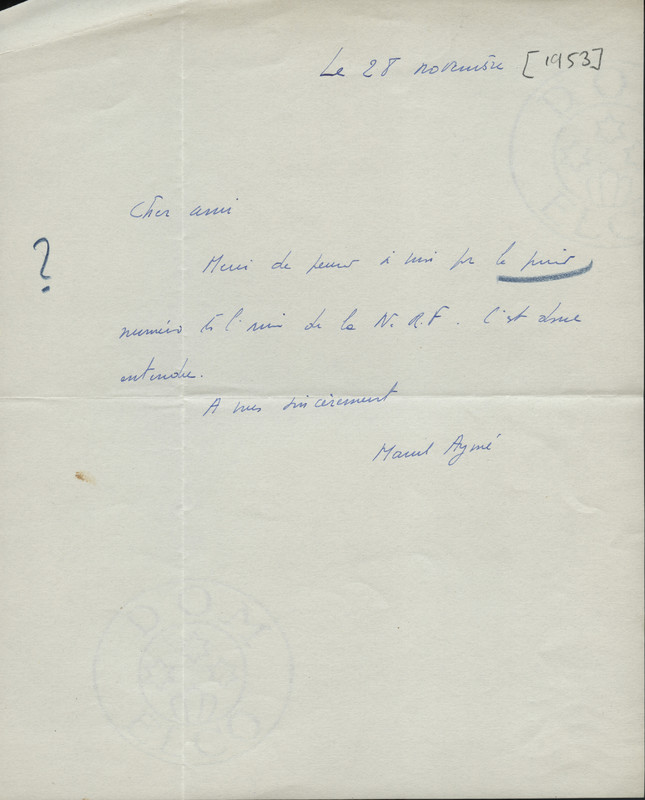 Le 28 novembre [1953]
Cher ami
?
Merci de penser à moi pr le
numéro de la N.R.F. C'est donc
entendu.
A vous sincèrement
Marcel Aymé
DOMO